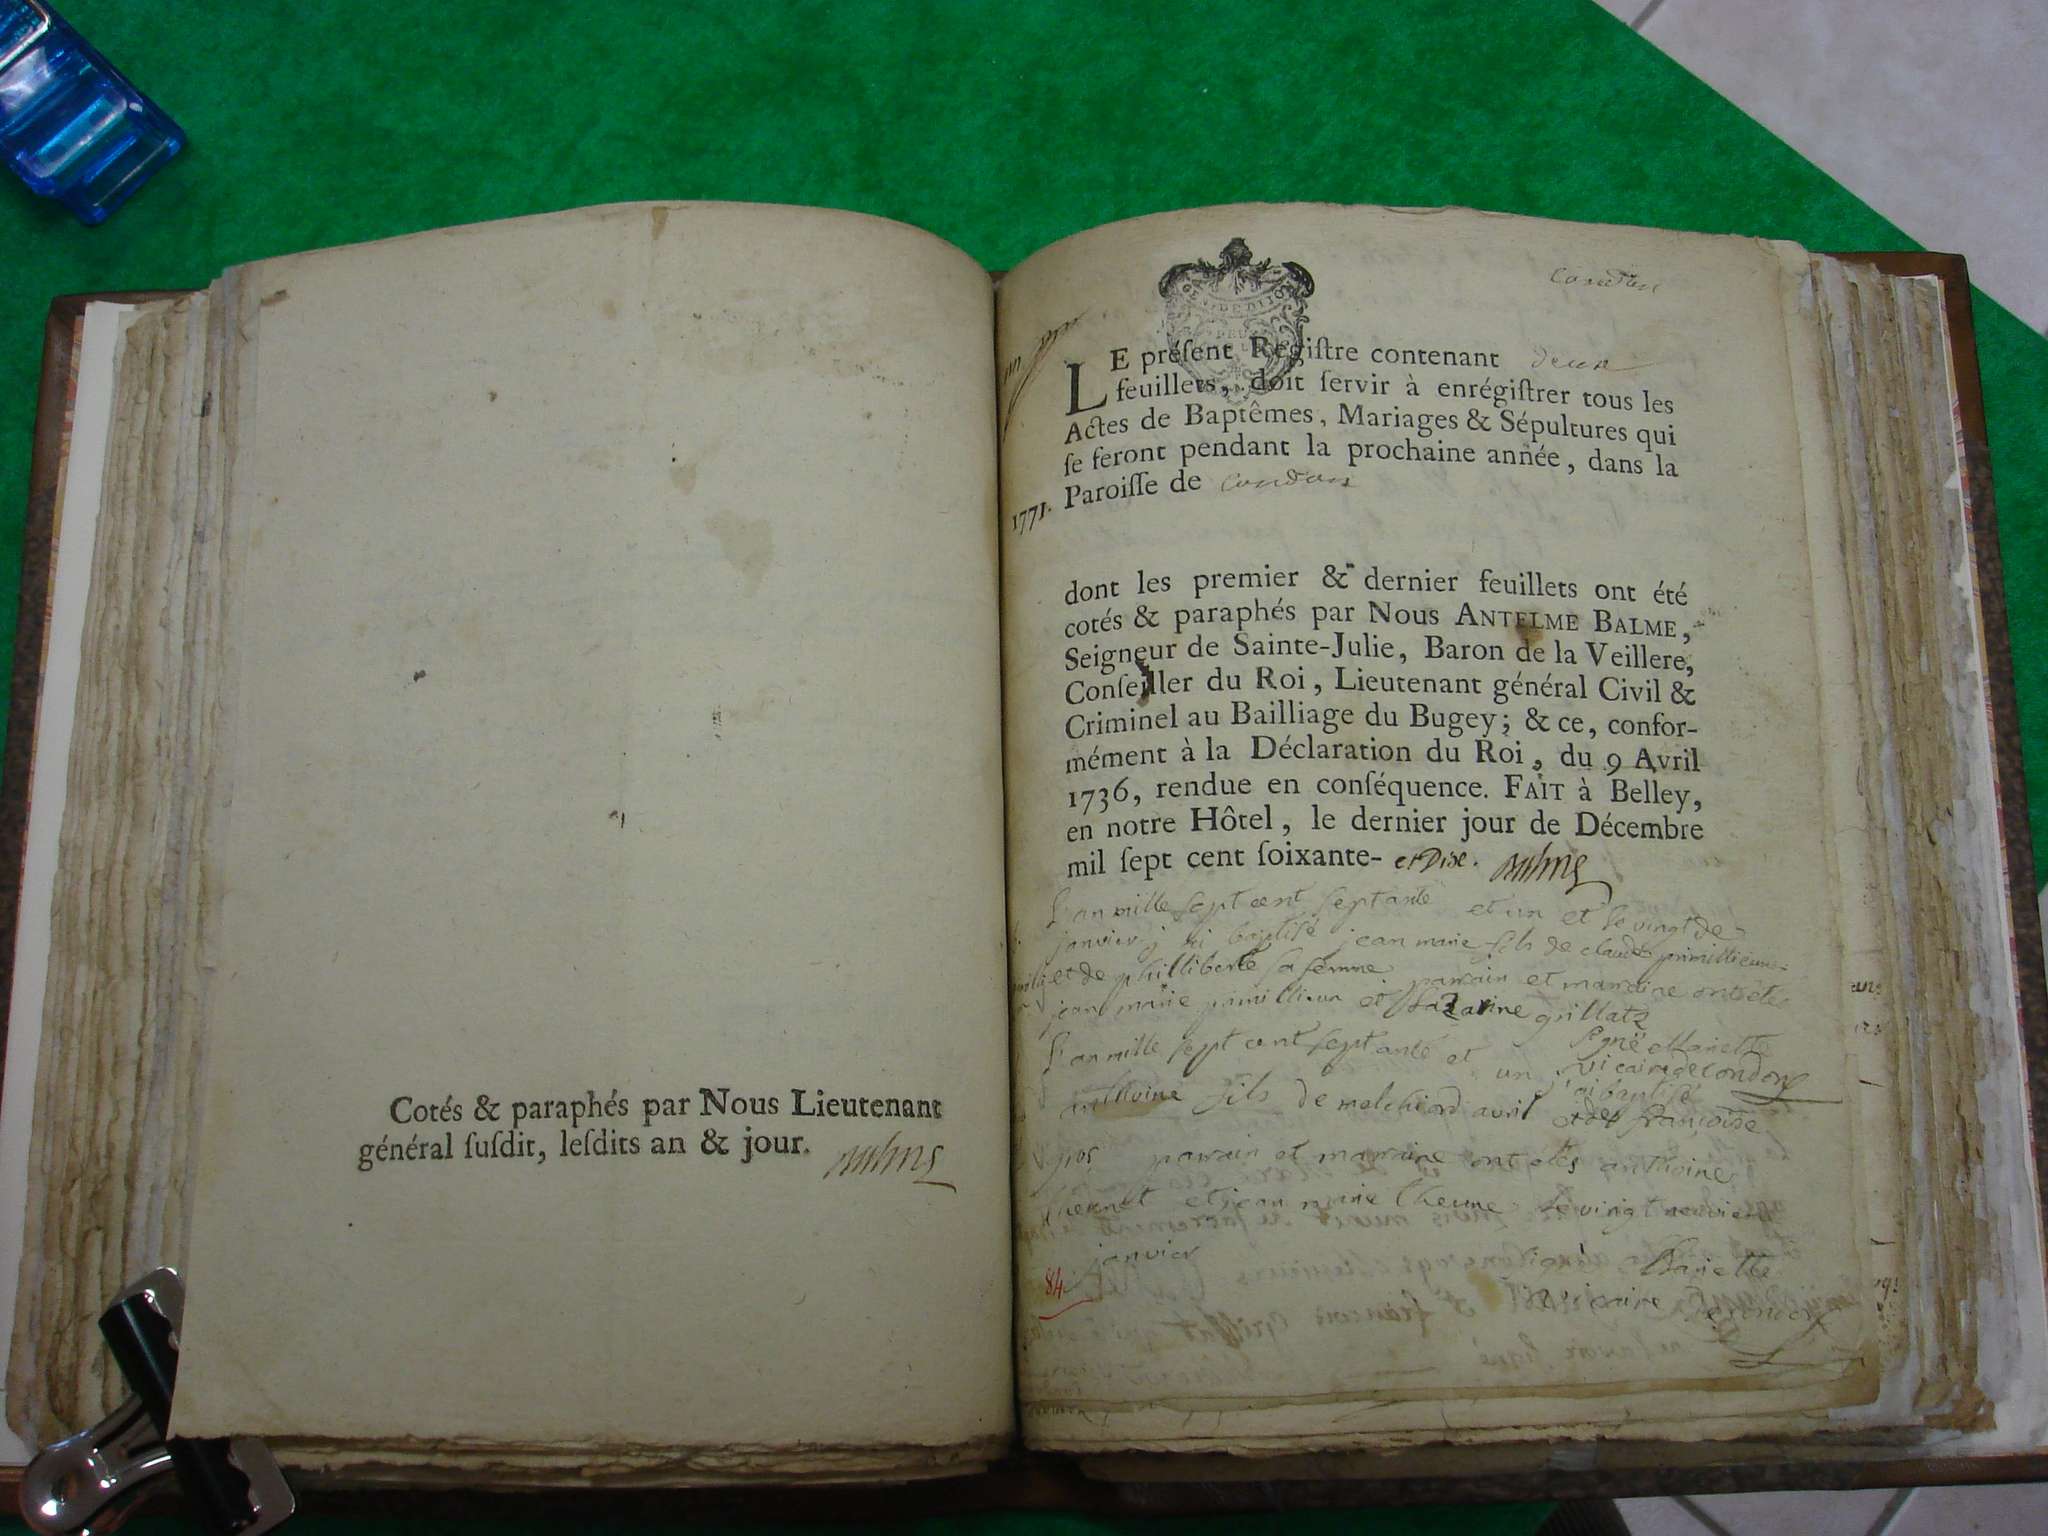 Cotés & paraphés par Nous Lieutenant
général ſuſdit, leſdits an & jour.
condon
LE préſent Regiſtre contenant deux
feuillets, doit ſervir à enrégiſtrer tous les
Actes de Baptêmes, Mariages & Sépultures qui
ſe feront pendant la prochaine année, dans la
Paroiſſe de condon
1771.
dont les premier & dernier feuillets ont été
cotés & paraphés par Nous ANTELME BALME,
Seigneur de Sainte-Julie, Baron de la Veillere,
Conſeiller du Roi, Lieutenant général Civil &
Criminel au Bailliage du Bugey; & ce, confor-
mément à la Déclaration du Roi, du 9 Avril
1736, rendue en conſéquence. FAIT à Belley,
en notre Hôtel, le dernier jour de Décembre
mil ſept cent ſoixante- et Dixe.
L'an mille sept cent septante et un et le vingt de
janvier j'ai baptisé jean marie fils de claude primillieux
et de philliberte sa femme parrain et marraine ont étés
jean marie primillieux et grillatz
signé
vicaire de condon
L'an mille sept cent septante et un j'ai baptisé
anthoine fils de melchiord avril et de françoise
parrain et marraine ont étés anthoine
et jean marie le vingt neuvie
janvier
vicaire de condon
84